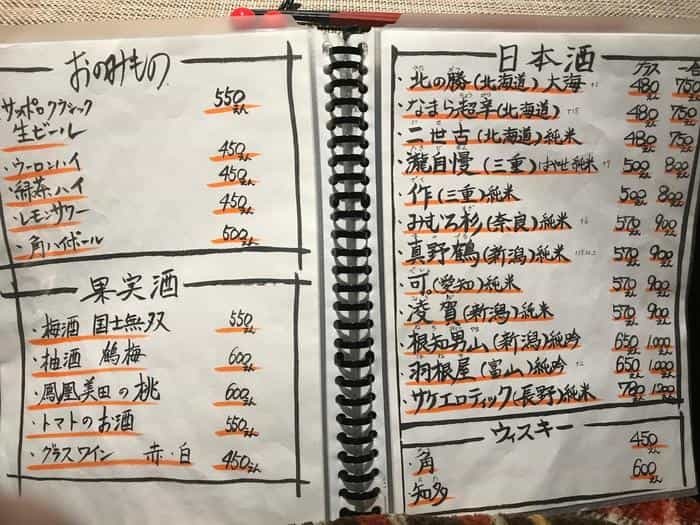 おのみもの
サッポロクラシック
生ビール 550えん
・ウーロンハイ 450えん
・緑茶ハイ 450えん
・レモンサワー 450えん
・角ハイボール 500えん
果実酒
・梅酒 国士無双 550えん
・柚酒 鶴梅 600えん
・鳳凰美田の桃 600えん
・トマトのお酒 550えん
・グラスワイン 赤・白 450えん
日本酒
グラス 一合
・北の勝(北海道)大海 480えん 750えん
・なまら超辛(北海道) 480えん 750えん
・二世古(北海道)純米 480えん 750えん
・瀧自慢(三重)はやせ純米 500えん 800えん
・作(三重)純米 500えん 800えん
・みむろ杉(奈良)純米 570えん 900えん
・真野鶴(新潟)純米 570えん 900えん
・可(愛知)純米 570えん 900えん
・凌賀(新潟)純米 570えん 900えん
・根知男山(新潟)純吟 650えん 1,000えん
・羽根屋(富山)純吟 650えん 1,000えん
・サケエロティック(長野)純米 780えん 1,200えん
ウィスキー
・角 450えん
・知多 600えん